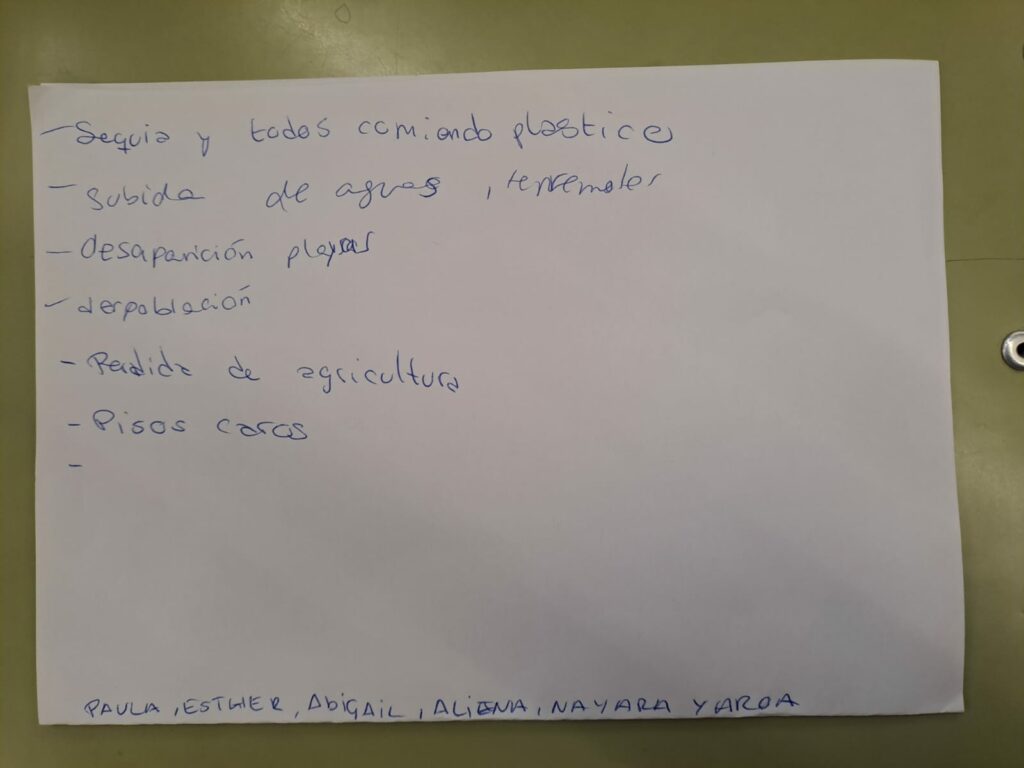 - Sequia y todos comiendo plastico
- Subida de aguas, terremotos
- Desaparición playas
- despoblación
- Perdida de agricultura
- Pisos caros
-
PAULA, ESTHER, AbiGAIL, ALIENA, NAYARA Y AROA